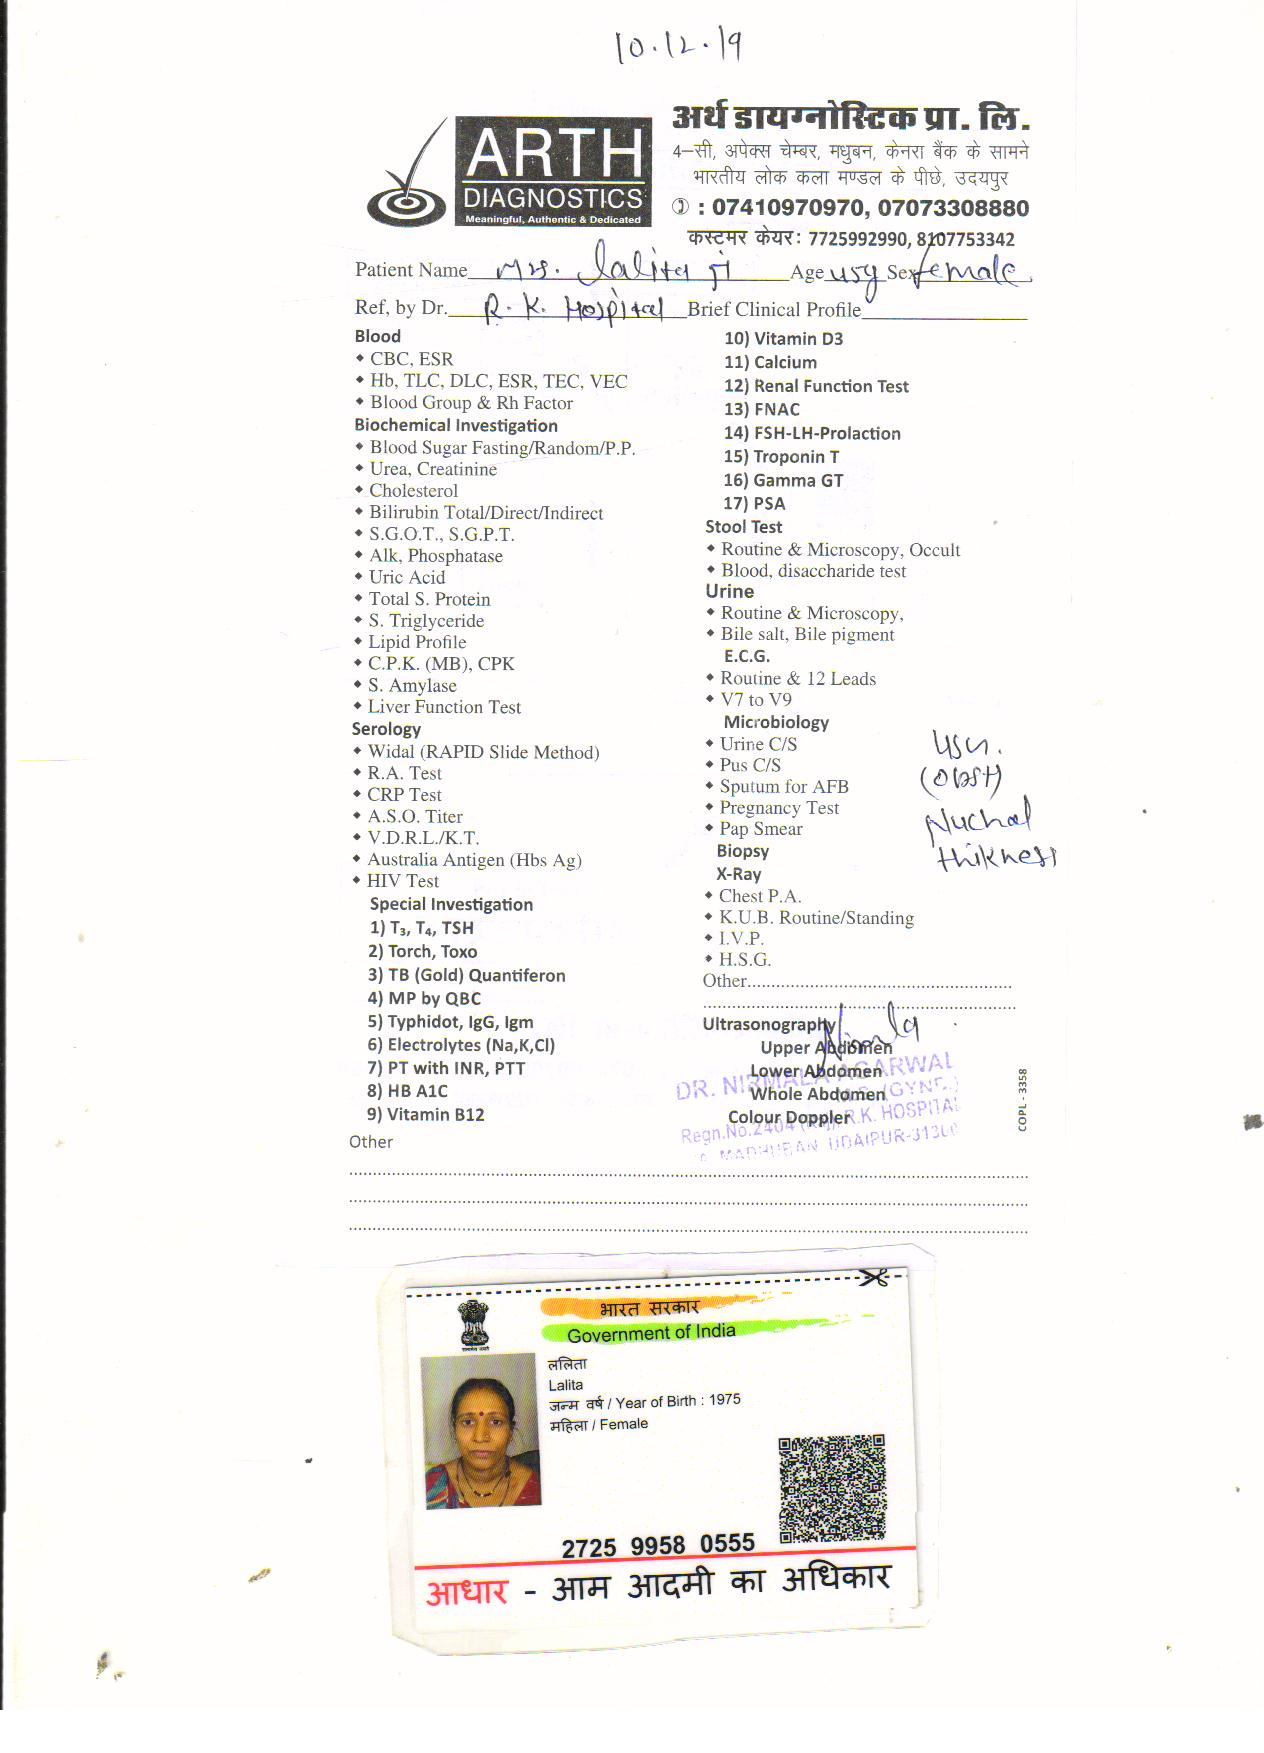 10.12.19
ARTH
DIAGNOSTICS
Meaningful, Authentic & Dedicated
अर्थ डायग्नोस्टिक प्रा. लि.
4–सी, अपेक्स चेम्बर, मधुबन, केनरा बैंक के सामने
भारतीय लोक कला मण्डल के पीछे, उदयपुर
: 07410970970, 07073308880
कस्टमर केयर: 7725992990, 8107753342
Patient Name Mrs. Lalita ji Age 45y Sex female
Ref, by Dr. R. K. Hospital Brief Clinical Profile
Blood
CBC, ESR
Hb, TLC, DLC, ESR, TEC, VEC
Blood Group & Rh Factor
Biochemical Investigation
Blood Sugar Fasting/Random/P.P.
Urea, Creatinine
Cholesterol
Bilirubin Total/Direct/Indirect
S.G.O.T., S.G.P.T.
Alk, Phosphatase
Uric Acid
Total S. Protein
S. Triglyceride
Lipid Profile
C.P.K. (MB), CPK
S. Amylase
Liver Function Test
Serology
Widal (RAPID Slide Method)
R.A. Test
CRP Test
A.S.O. Titer
V.D.R.L./K.T.
Australia Antigen (Hbs Ag)
HIV Test
Special Investigation
1) T₃, T₄, TSH
2) Torch, Toxo
3) TB (Gold) Quantiferon
4) MP by QBC
5) Typhidot, IgG, Igm
6) Electrolytes (Na,K,Cl)
7) PT with INR, PTT
8) HB A1C
9) Vitamin B12
Other
10) Vitamin D3
11) Calcium
12) Renal Function Test
13) FNAC
14) FSH-LH-Prolaction
15) Troponin T
16) Gamma GT
17) PSA
Stool Test
Routine & Microscopy, Occult
Blood, disaccharide test
Urine
Routine & Microscopy,
Bile salt, Bile pigment
E.C.G.
Routine & 12 Leads
V7 to V9
Microbiology
Urine C/S
Pus C/S
Sputum for AFB
Pregnancy Test
Pap Smear
Biopsy
X-Ray
Chest P.A.
K.U.B. Routine/Standing
I.V.P.
H.S.G.
Other
USG.
(Obst)
Nuchal
thikness
Ultrasonography
Upper Abdomen
Lower Abdomen
Whole Abdomen
Colour Doppler
DR. NIRMALA AGARWAL
(GYNE.)
Regn.No.2404 R.K. HOSPITAL
MADHUBAN UDAIPUR-3130
COPL - 3358
भारत सरकार
Government of India
ललिता
Lalita
जन्म वर्ष / Year of Birth : 1975
महिला / Female
2725 9958 0555
आधार - आम आदमी का अधिकार